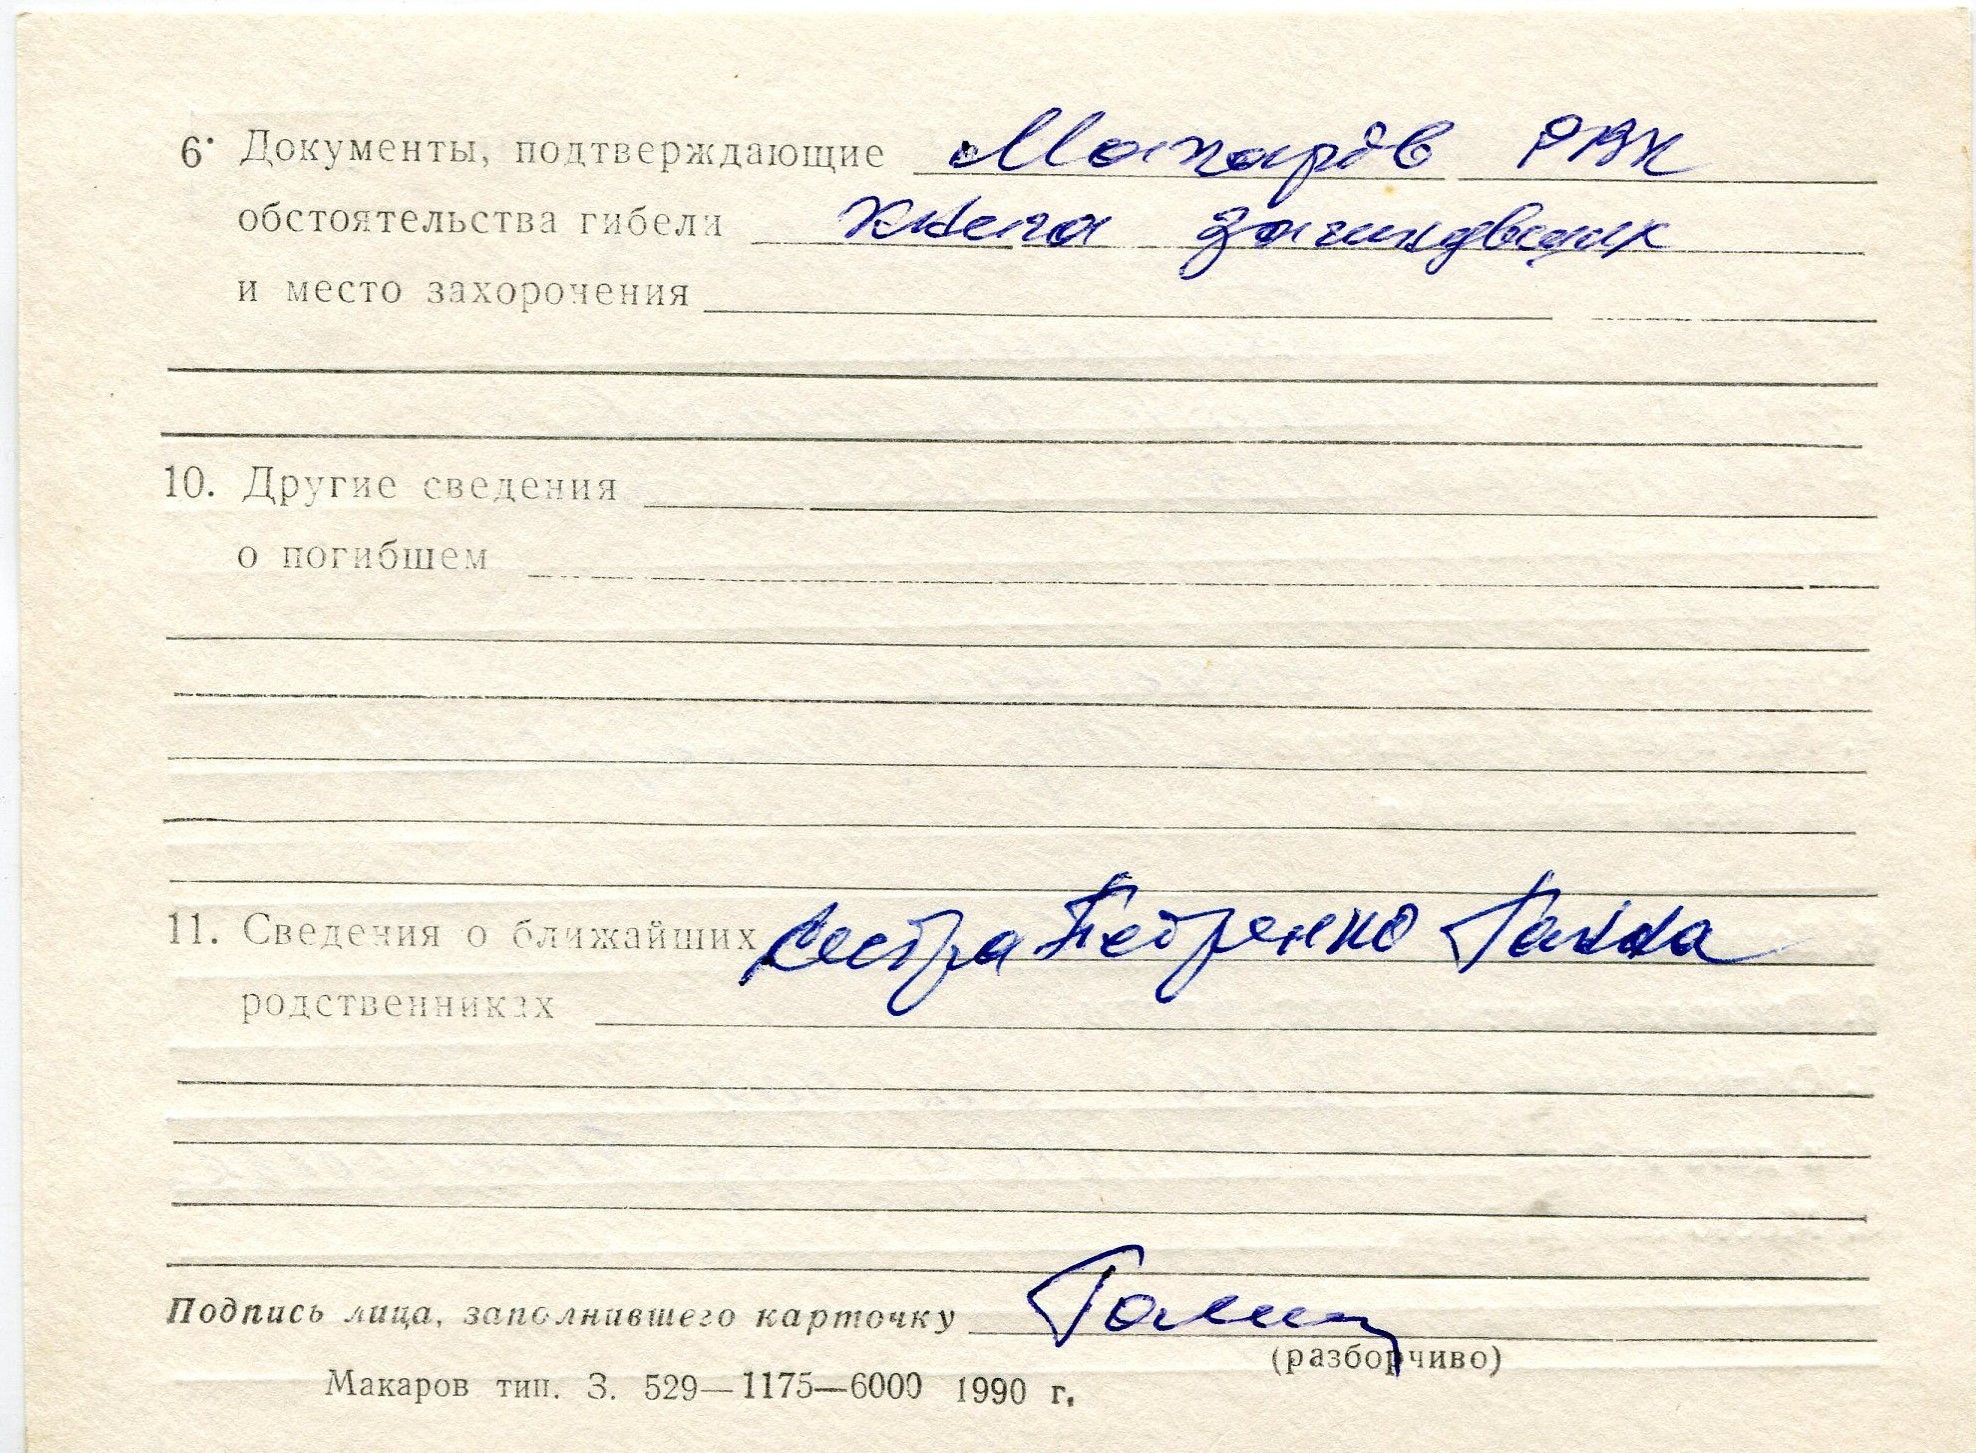 6. Документы, подтверждающие Макаров РВК
обстоятельства гибели книга
и место захоронения
10. Другие сведения
о погибшем
11. Сведения о ближайших сестра Петренко Ганна
родственниках
Подпись лица, заполнившего карточку
(разборчиво)
Макаров тип. З. 529—1175—6000 1990 г.